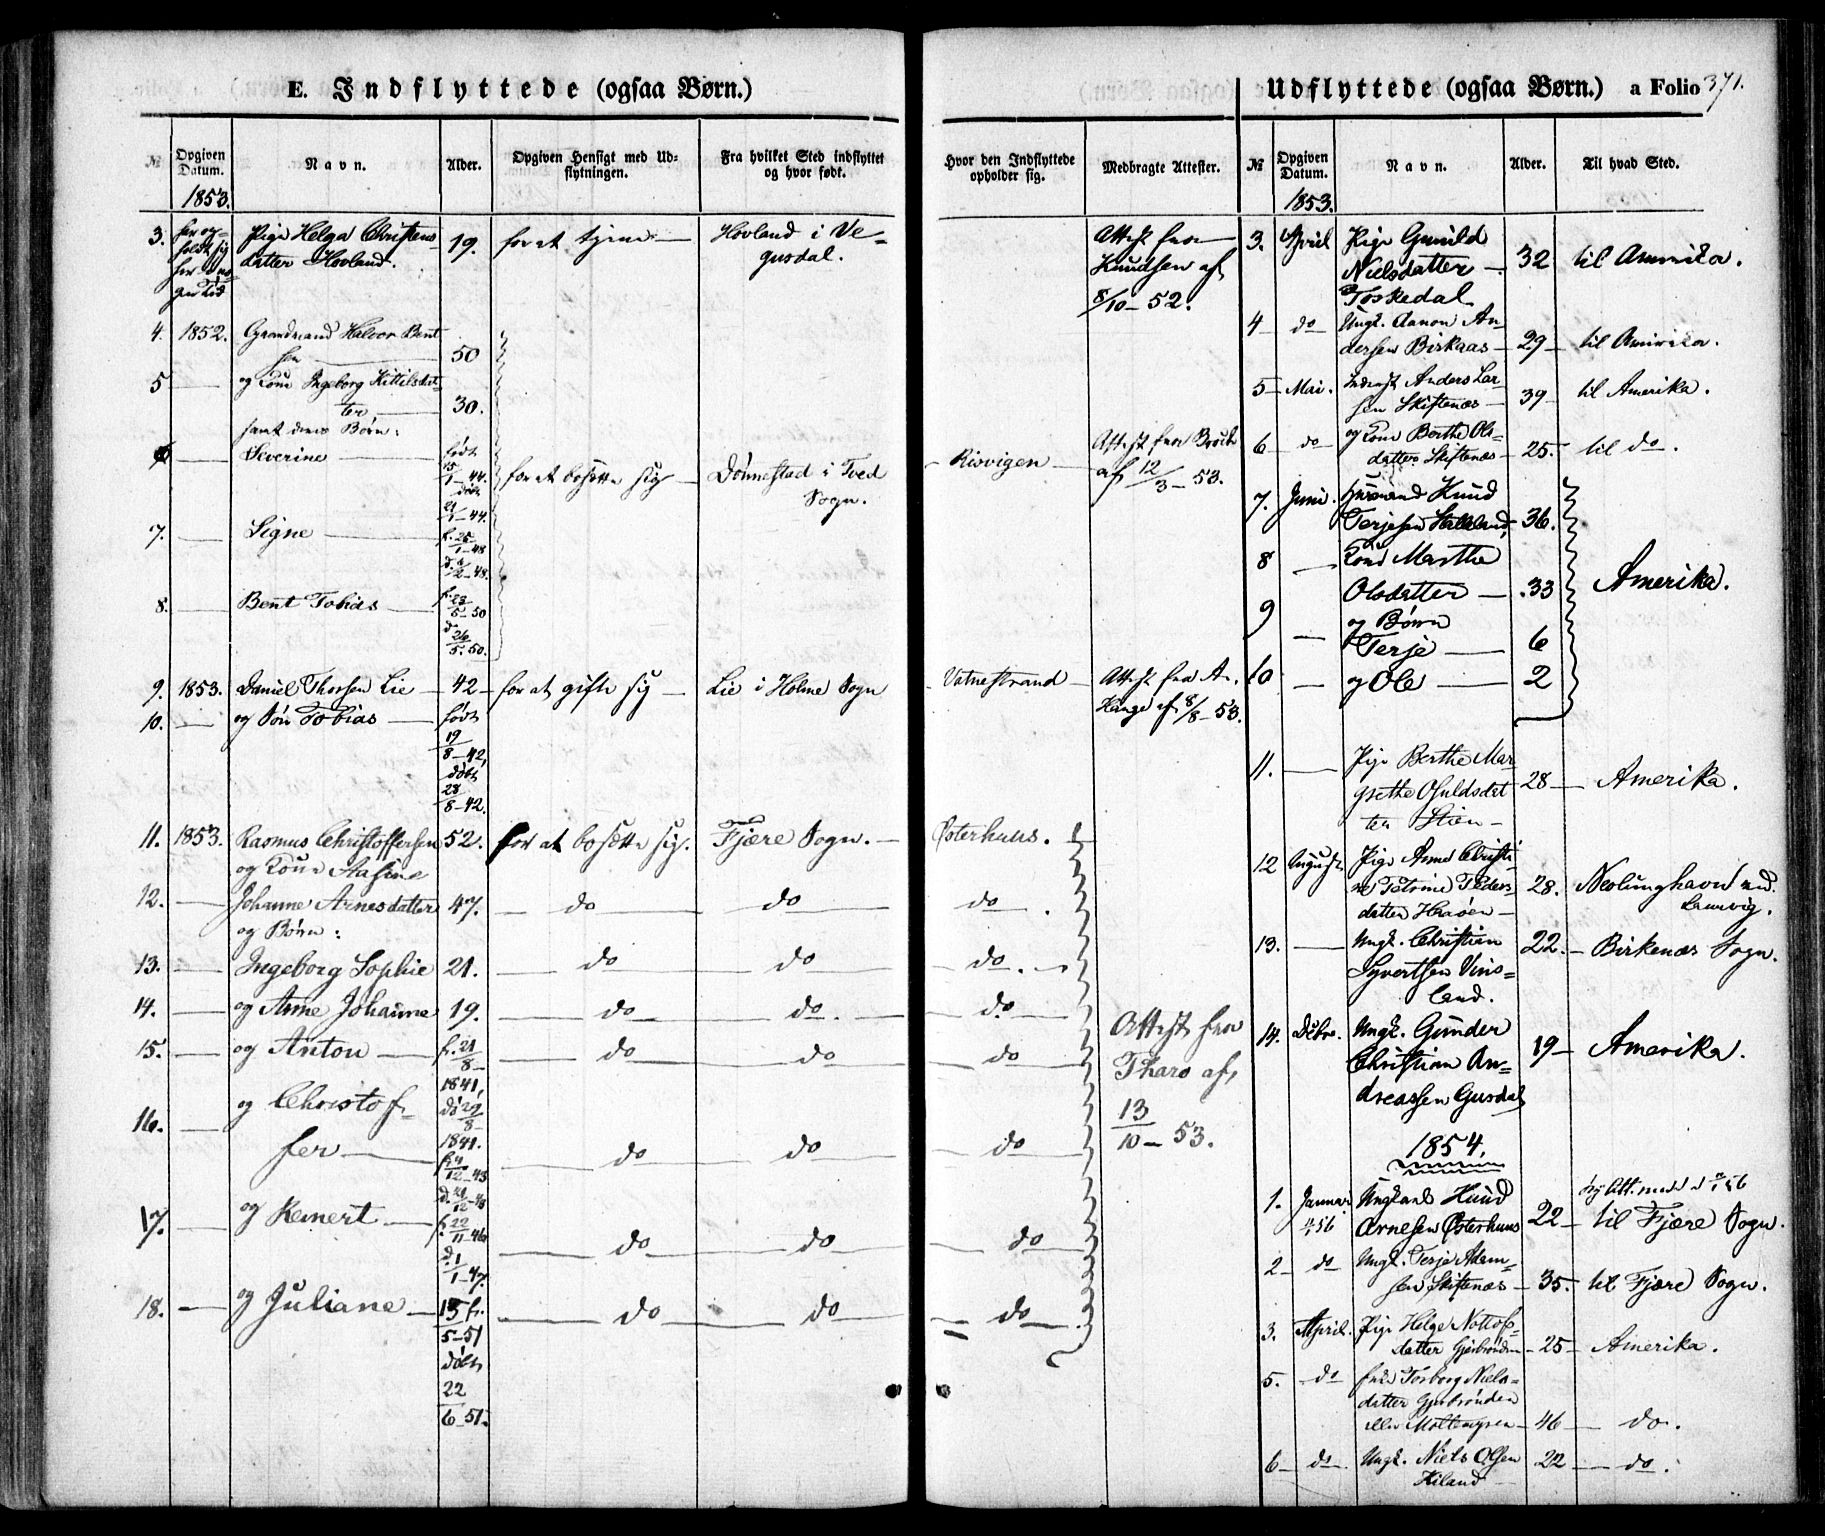 E. Indflyttede (ogsaa Børn.)
№
Opgiven Datum.
Navn.
Alder.
Opgiven Hensigt med Ud-
flytningen.
Fra hvilket Sted indflyttet
og hvor født.
Hvor den Indflyttede
opholder sig.
Medbragte Attester.
1853.
3. Pige Helga Christens 19. for at tjene Hovland i Ve- Attest fra
datter Hovland. gusdal. Knudsen af
8/10 - 52.
4. 1852. Gaardmand Halvor Bent
sen 50
5 og Kone Ingeborg Kittilsdat-
ter 30.
samt deres Børn:
6 Siverine født 15/1-44. døbt 21/1-44. for at bosætte sig Dønnestad i Tved Sogn. Risvigen Attest fra Broch af 12/3-53.
7. Signe f. 25/1-48 d. 4/2-48.
8. Bent Tobias f. 23/5-50 d. 26/5-50.
9. 1853. Daniel Thorsen Lie 42 for at gifte sig Lie i Holme Sogn Vatnestrand Attest fra A.
Hauge af 8/8-53.
10. og Søn Tobias født
19/8-42,
døbt
28/8-42.
11. 1853. Rasmus Christoffersen 52. for at bosætte sig. Fjære Sogn. Østerhus.
og Kone Aasine
12. Johanne Arnesdatter 47. do do do
og Børn:
13. Ingeborg Sophie 21. do do do
14. og Anne Johanne 19. do do do
15. og Anton f. 21/8 1841, dø 29/8 1841. do do do
Attest fra
Tharo af
13/10-53.
16. og Christof-
fer f. 4/12-43 d. 21/12-43 do do do
17. og Reinert f. 22/11-46 d. 1/1-47. do do do
18. og Juliane 15 f.
5-51
døbt
22
6-51. do do do
Udflyttede (ogsaa Børn.) a Folio 371.
№
Opgiven Datum.
Navn.
Alder.
Til hvad Sted.
1853.
3. April Pige Gunild
Nielsdatter 32 til Amerika.
Toskedal
4 do Ungk. Aanon An-
dersen Birkaas 29 til Amerika.
5 Mai. Anders Lar-
sen Skiftenæs 39 til Amerika.
6 do og Kone Berthe Ols-
datter Skiftenæs 25. til do.
7. Juni. Husmand Knud
Terjesen 36.
8 Kone Marthe
Olsdatter 33 Amerika.
og Børn
9 Terje 6
10 og Ole 2
11. Pige Berthe Mar-
grethe Osuldsdat 28 Amerika.
ter Stien
12 August Pige Anne Christi
ne Petrine Peders 28. Neslunghavn ved
datter Hesøen Laurvig.
13. Ungk. Christian 22. Birkenæs Sogn.
Syvertsen Vins-
land.
14. Debr. Ungk. Gunder
Christian An- 19 Amerika.
dreassen Gusdal
1854.
1. Januar Ungkarl Knud
Arnesen Østerhus 22 til Fjære Sogn.
2 do Ungk. Terje Adam-
sen Skiftenæs 35. til Fjære Sogn.
3. April. Pige Helge Nottof-
datter 25 Amerika.
5. do Torborg Niels-
datter
eller Moltemyren 46 do.
6 do Ungk. Niels Olsen 22 do.
Kiland